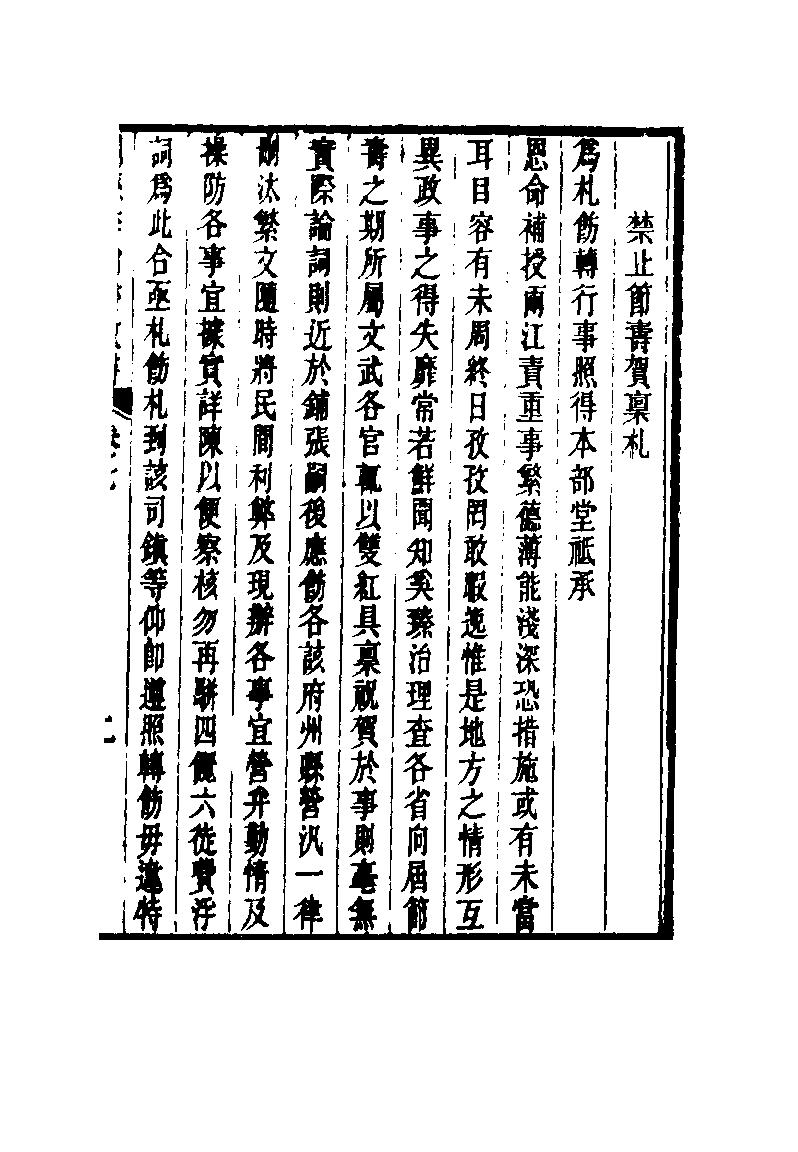 禁止節壽賀稟札
爲札飭轉行事照得本部堂祗承
恩命補授兩江責重事繁德薄能淺深恐措施或有未當
耳目容有未周終日孜孜罔敢暇逸惟是地方之情形互
異政事之得失靡常若鮮聞知奚臻治理查各省向屆節
壽之期所屬文武各官輒以雙紅具稟祝賀於事則毫無
實際論詞則近於鋪張嗣後應飭各該府州縣營汛一律
刪汰繁文隨時將民間利弊及現辦各事宜營弁勤惰及
操防各事宜據實詳陳以便察核勿再駢四儷六徒費浮
詞爲此合亟札飭札到該司鎮等仰即遵照轉飭毋違特
卷七